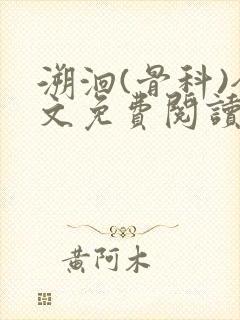 溯洄(骨科)
文免費閱讀
黃阿木